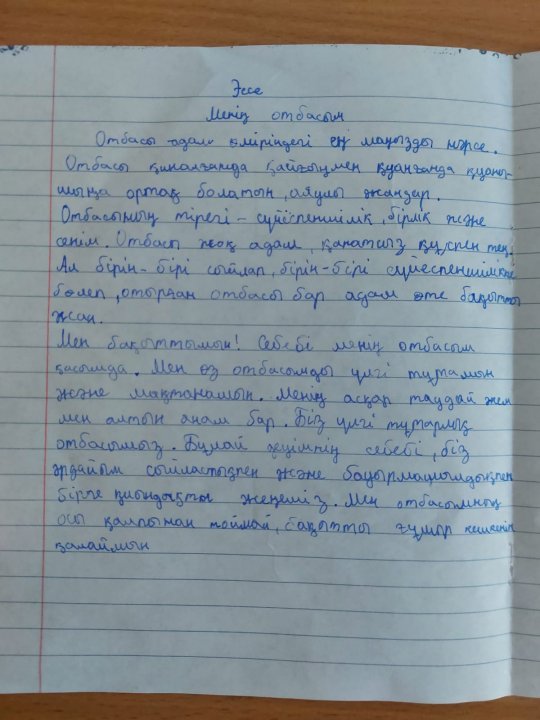 Эссе
Менің отбасым
Отбасы адам өміріндегі ең маңызды нәрсе.
Отбасы қиналғанда қайғыңмен қуанғанда қуаны-
шыңа ортақ болатын, аяулы жандар.
Отбасының тірегі - сүйіспеншілік, бірлік және
сенім. Отбасы жоқ адам, қанатсыз құспен тең.
Ал бірін-бірі сыйлап, бірін-бірі сүйіеспеншілікке
бөлеп, отырған отбасы бар адам өте бақытты
жан.
Мен бақыттымын! Себебі менің отбасым
қасымда. Мен өз отбасымды үлгі тұтамын
және мақтанамын. Менің асқар таудай әкем
мен алтын анам бар. Біз үлгі тұтарлық
отбасымыз. Бұлай деуімнің себебі, біз
әрдайым сыйластықпен және бауырмашылдықпен
бірге қиындықты жеңеміз. Мен отбасымның
осы қалпынан таймай, бақытты ғұмыр кешкенін
қалаймын